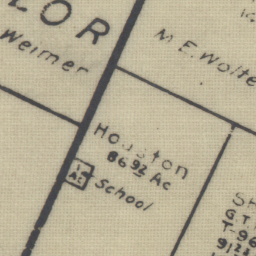 LOR
Weimer
M.E. Wolte
Houston
86 92 Ac
School
AC
G.T.
T-96